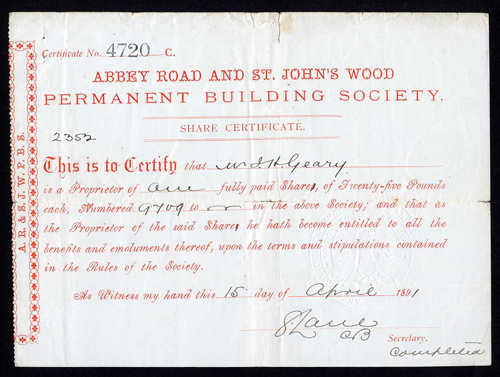 Certificate No. 4720 C.
ABBEY ROAD AND ST. JOHN'S WOOD
PERMANENT BUILDING SOCIETY.
SHARE CERTIFICATE.
2352
This is to Certify that W. J. H. Geary
is a Proprietor of one fully paid Share, of Twenty-five Pounds
each, Numbered 9709 to — in the above Society; and that as
the Proprietor of the said Share, he hath become entitled to all the
benefits and emoluments thereof, upon the terms and stipulations contained
in the Rules of the Society.
As Witness my hand this 15 day of April 1891
Lane
CB
Secretary.
Completed
A. R. & S. J. W. P. B. S.